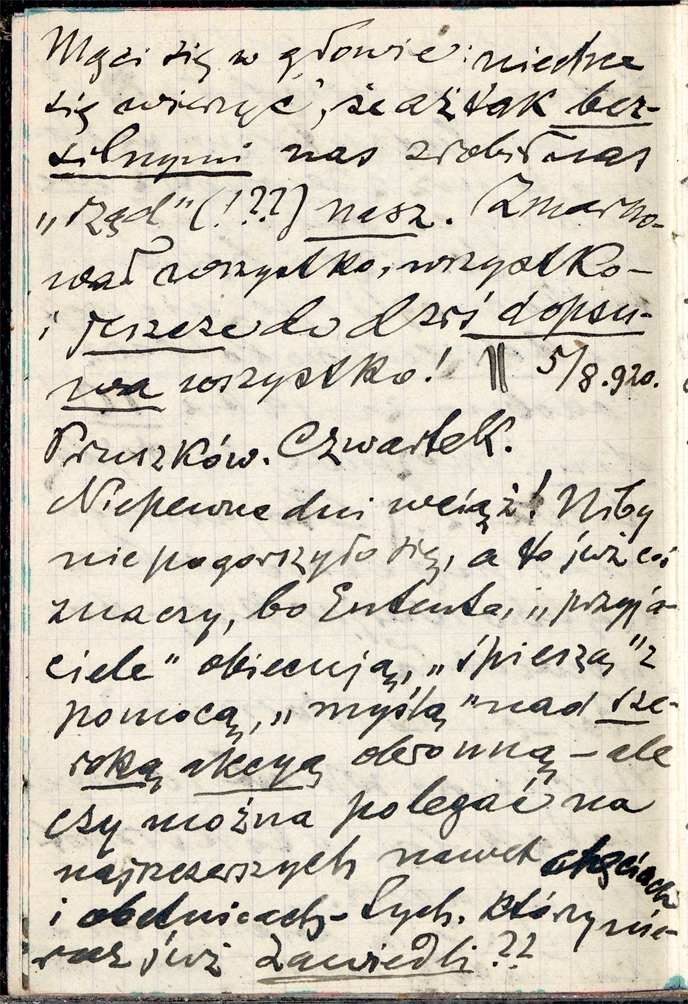 Mąci się w głowie: niechce
się wierzyć, że aż tak bez-
silnymi nas zrobił nas
„rząd" (!??) nasz. Zmarno-
wał wszystko, wszystko –
i jeszcze do dziś dopsu-
wa wszystko! || 5/8.920.
Pruszków. Czwartek.
Niepewne dni wciąż! Niby
nie pogorszyło się, a to już coś
znaczy, bo Ententa, „przyja-
ciele" obiecują, „śpieszą" z
pomocą, „myślą" nad sze-
roką akcyą obronną – ale
czy można polegać na
najszczerszych nawet chęciach
i obietnicach – tych, którzy nie-
raz już zawiedli??